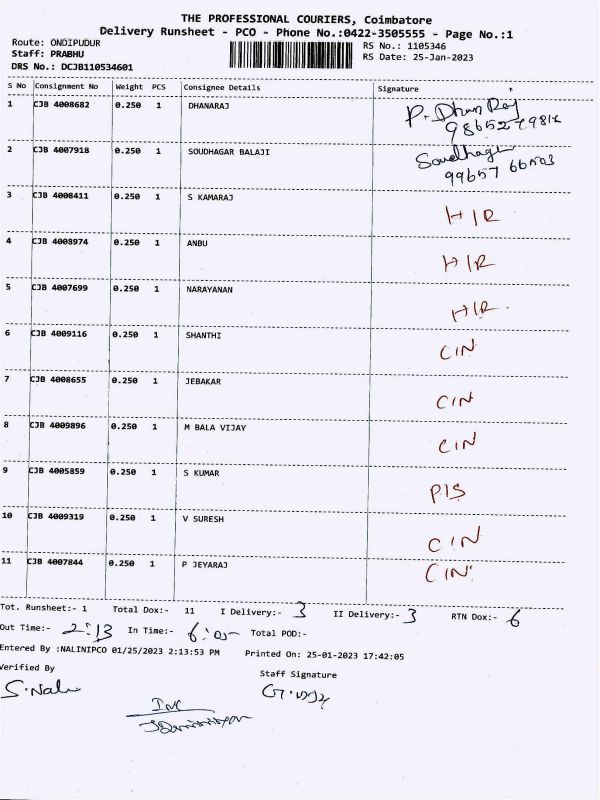 THE PROFESSIONAL COURIERS, Coimbatore
Delivery Runsheet - PCO - Phone No.:0422-3505555 - Page No.:1
Route: ONDIPUDUR
Staff: PRABHU
DRS No.: DCJB110534601
RS No.: 1105346
RS Date: 25-Jan-2023
S No Consignment No Weight PCS Consignee Details Signature
1 CJB 4008682 0.250 1 DHANARAJ P. Dhan Raj
2 CJB 4007918 0.250 1 SOUDHAGAR BALAJI Soudhagar
99657 66503
3 CJB 4008411 0.250 1 S KAMARAJ H/R
4 CJB 4008974 0.250 1 ANBU H/R
5 CJB 4007699 0.250 1 NARAYANAN H/R
6 CJB 4009116 0.250 1 SHANTHI C/N
7 CJB 4008655 0.250 1 JEBAKAR C/N
8 CJB 4009896 0.250 1 M BALA VIJAY C/N
9 CJB 4005859 0.250 1 S KUMAR P/S
10 CJB 4009319 0.250 1 V SURESH C/N
11 CJB 4007844 0.250 1 P JEYARAJ C/N
Tot. Runsheet:- 1 Total Dox:- 11 I Delivery:- 3 II Delivery:- 3 RTN Dox:- 6
Out Time:- 2:13 In Time:- 6:05 Total POD:-
Entered By :NALINIPCO 01/25/2023 2:13:53 PM Printed On: 25-01-2023 17:42:05
Verified By Staff Signature
S. Nali